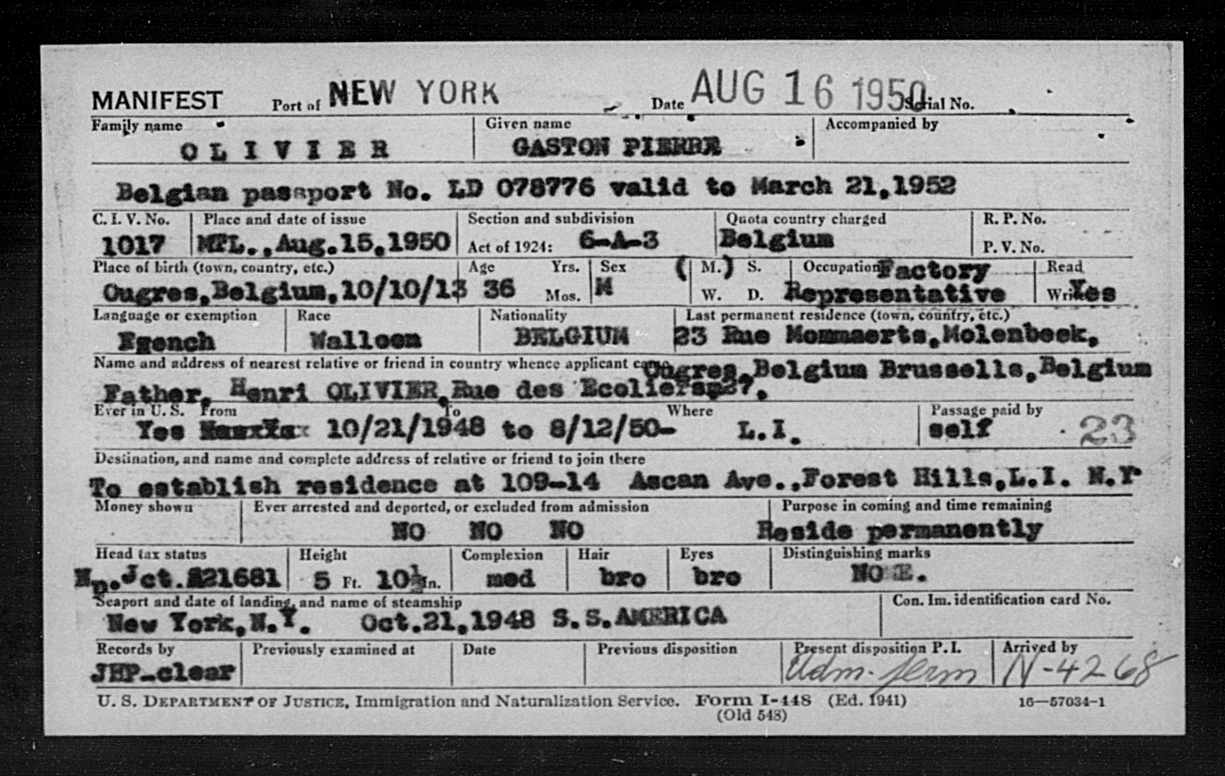 MANIFEST Port of NEW YORK Date AUG 16 1950 Serial No.
Family name Given name Accompanied by
OLIVIER GASTON PIERRE
Belgian passport No. LD 078776 valid to March 21,1952
C. I. V. No. Place and date of issue Section and subdivision Quota country charged R. P. No.
1017 MTL.,Aug.15,1950 Act of 1924: 6-A-3 Belgium P. V. No.
Place of birth (town, country, etc.) Age Yrs. Sex (M.) S. Occupation Factory Read
Ougree,Belgium,10/10/13 36 Mos. M W. D. Representative Write Yes
Language or exemption Race Nationality Last permanent residence (town, country, etc.)
French Walloon BELGIUM 23 Rue Mommaerts,Molenbeek,
Name and address of nearest relative or friend in country whence applicant came Ougree,Belgium Brussells,Belgium
Father, Henri OLIVIER,Rue des Ecoliers,27,
Ever in U. S. From To Where Passage paid by
Yes 10/21/1948 to 8/12/50- L.I. self 23
Destination, and name and complete address of relative or friend to join there
To establish residence at 109-14 Ascan Ave.,Forest Hills,L.I. N.Y
Money shown Ever arrested and deported, or excluded from admission Purpose in coming and time remaining
NO NO NO Reside permanently
Head tax status Height Complexion Hair Eyes Distinguishing marks
Jct. 5 Ft. 10½ In. med bro bro NONE.
Seaport and date of landing, and name of steamship Con. Im. identification card No.
New York,N.Y. Oct.21,1948 S.S.AMERICA
Records by Previously examined at Date Previous disposition Present disposition P. I. Arrived by
JHP-clear Adm. perm N-4268
U. S. DEPARTMENT OF JUSTICE, Immigration and Naturalization Service. Form I-448 (Ed. 1941) 16—57034-1
(Old 548)